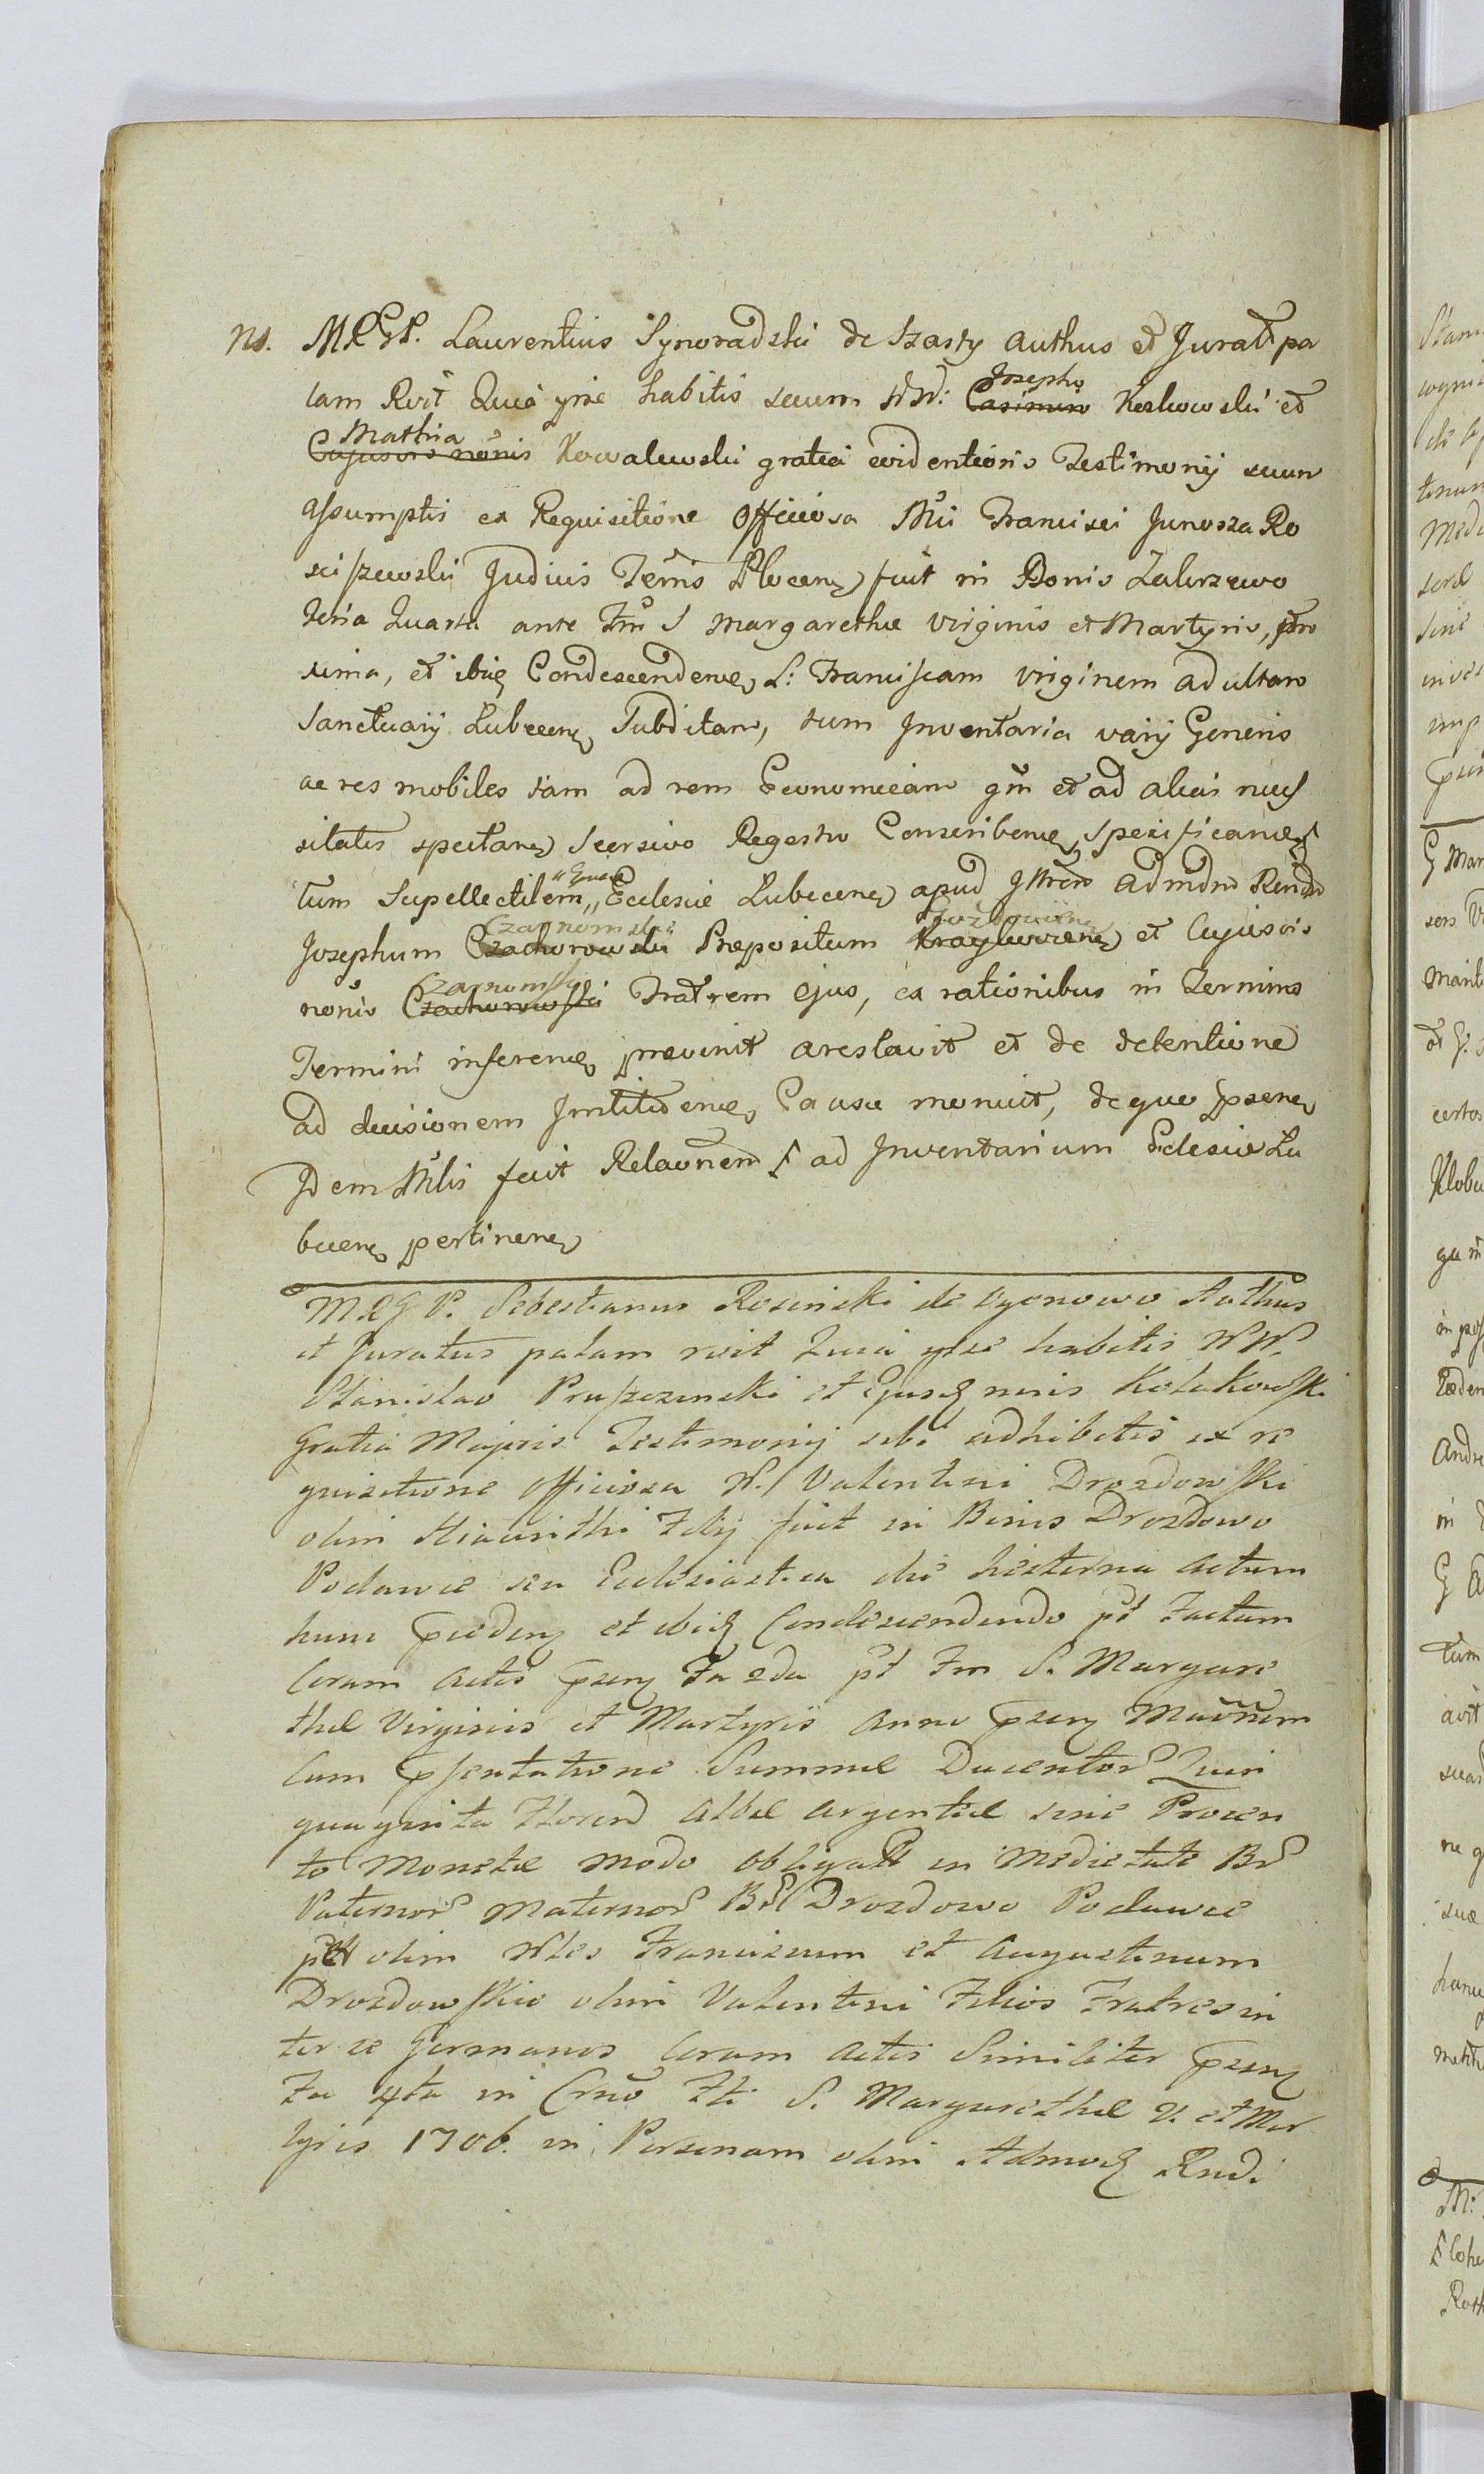 Ns. M R G P. Laurentius Synoradzki de Szasty Authus et Jurat pa
lam Rvit Quia ipse habitis secum NN: Casimiro Josepho Keskowski et
Cujusvis nõnis Mathia Kowalewski gratia evidentioris Testimonij secum
assumptis ex Requisitione Officiosa Mci Francisci Junosza Ro
sciszewski Judicis Terris Plocen fuit in Bonis Zakrzewo
Feria Quarta ante Fm S Margarethae Virginis et Martyris, pro
xima, et ibiq Condescenden L: Franciscam Virginem adultam
Sanctuarij Lubecen Subditam, tum Inventaria varij Generis
ac res mobiles tam ad rem Economicam qm et ad alias neces
sitates spectan Seorsivo Regestro Conscriben, Specifican
tum Supellectilem Ecclesiae Lubecen apud Illrem Admdm Rendm
Josephum Czachorowski Czarnomski Praepositum et Cujusvis
nõnis Czachorowski Czarnomski Fratrem ejus, ex rationibus in Termino
Termini inferen praevenit arestavit et de detentione
ad decisionem Instituen Causae monuit, de quo praesen
Idem Mlis fecit Relaonem ad Inventarium Eclesiae Lu
becen pertinen
M.R G P. Sebestianus Rosinski de Authus
et Juratus palam rvit Quia ipse habitis NN.
Stanislao Pruszczinski et Ejusd ninis Kolakowski
Gratia Majoris Testimonij sibi adhibitis ex re
quisitione officiosa N. Valentini Drozdowski
olim Hiacinthi Filij fuit in Bonis Drozdowo
Podawce seu Ecclesiastica die hesterna actum
hunc praeceden et ibiq Condescendendo pt Factum
Coram Actis praesen Fa 2da pt Fm S. Margare
thae Virginis et Martyris Anni praesen
Cum praesentatione Summae Ducentor Quin
quaginta Floren albae argenteae sine Proven
to Monetae modo obligatt in Medietate Br
Paternor Maternor Br Drozdowo Podawce
per olim Nles Franciscum et Augustinum
Drozdowskie olim Valentini Filios Fratres in
ter se Germanos Coram Actis Similiter praesen
Fa 4ta in Crno Fti S. Margarethae V. et Mar
tyris 1706. in Personam olim Admod Rndi